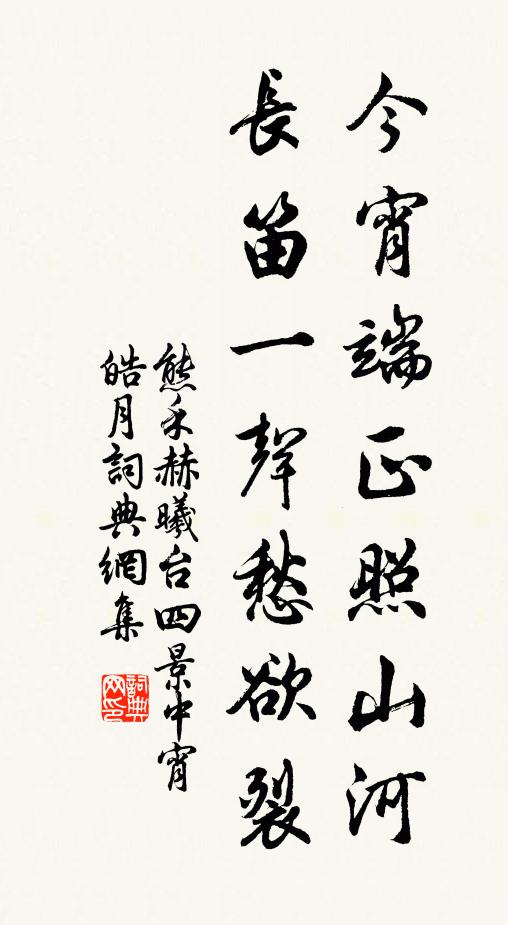 今宵端正照山河
長笛一聲愁欲裂
熊禾赫曦台四景中宵
皓月詞典網集
詞典网印